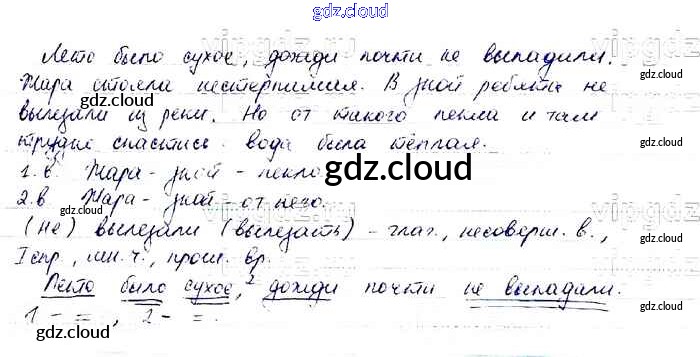 gdz.cloud
Лето было сухое, дожди почти не выпадали.
Жара стояла нестерпимая. В зной ребята не
вылезали из реки. Но от такого пекла и там
трудно спастись вода была тёплая.
1.в. Жара - зной - пекло
2.в Жара - зной - от
(Не) вылезали (вылезать) - глаг., несоверш. в.,
I спр., мн. ч., прош. вр.
Лето было сухое, ² дожди почти не выпадали.
1 - = , 2 - = .
gdz.cloud
gdz.cloud
gdz.cloud
gdz.cloud
gdz.cloud
gdz.cloud
gdz.cloud
gdz.cloud
gdz.cloud